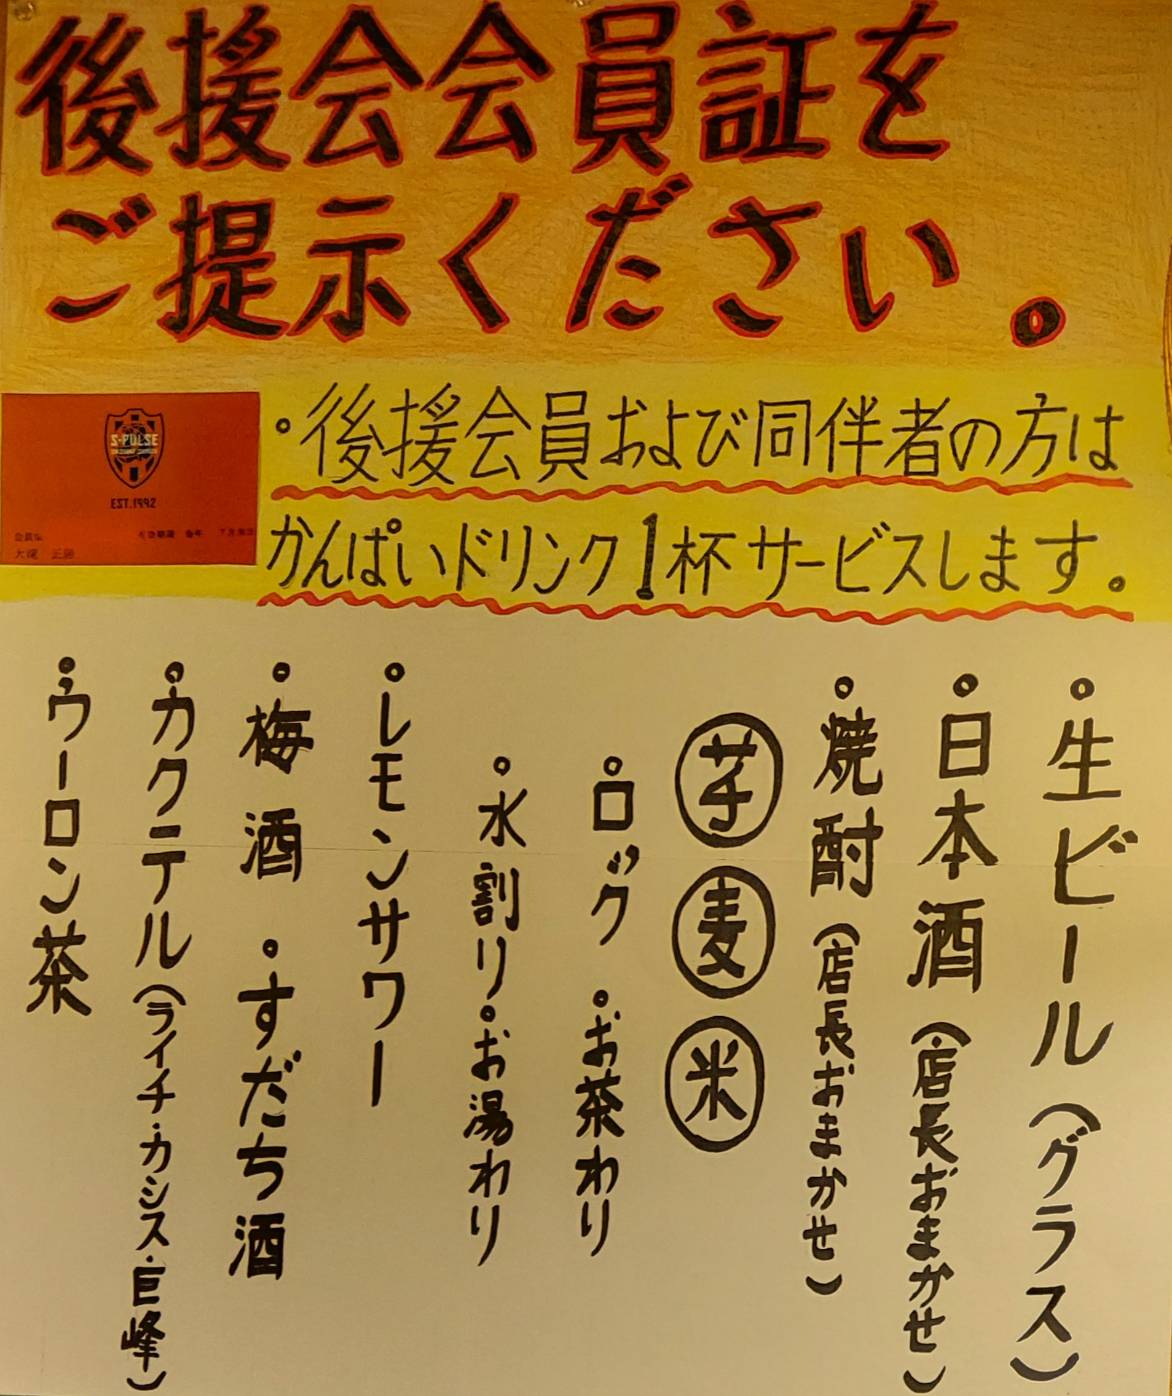 後援会会員証を
ご提示ください。
S-PULSE
EST.1992
・後援会員および同伴者の方は
かんぱいドリンク1杯サービスします。
・生ビール(グラス)
・日本酒(店長おまかせ)
・焼酎(店長おまかせ)
芋 麦 米
・ロック ・お茶わり
・水割り ・お湯わり
・レモンサワー
・梅酒 ・すだち酒
・カクテル(ライチ・カシス・巨峰)
・ウーロン茶